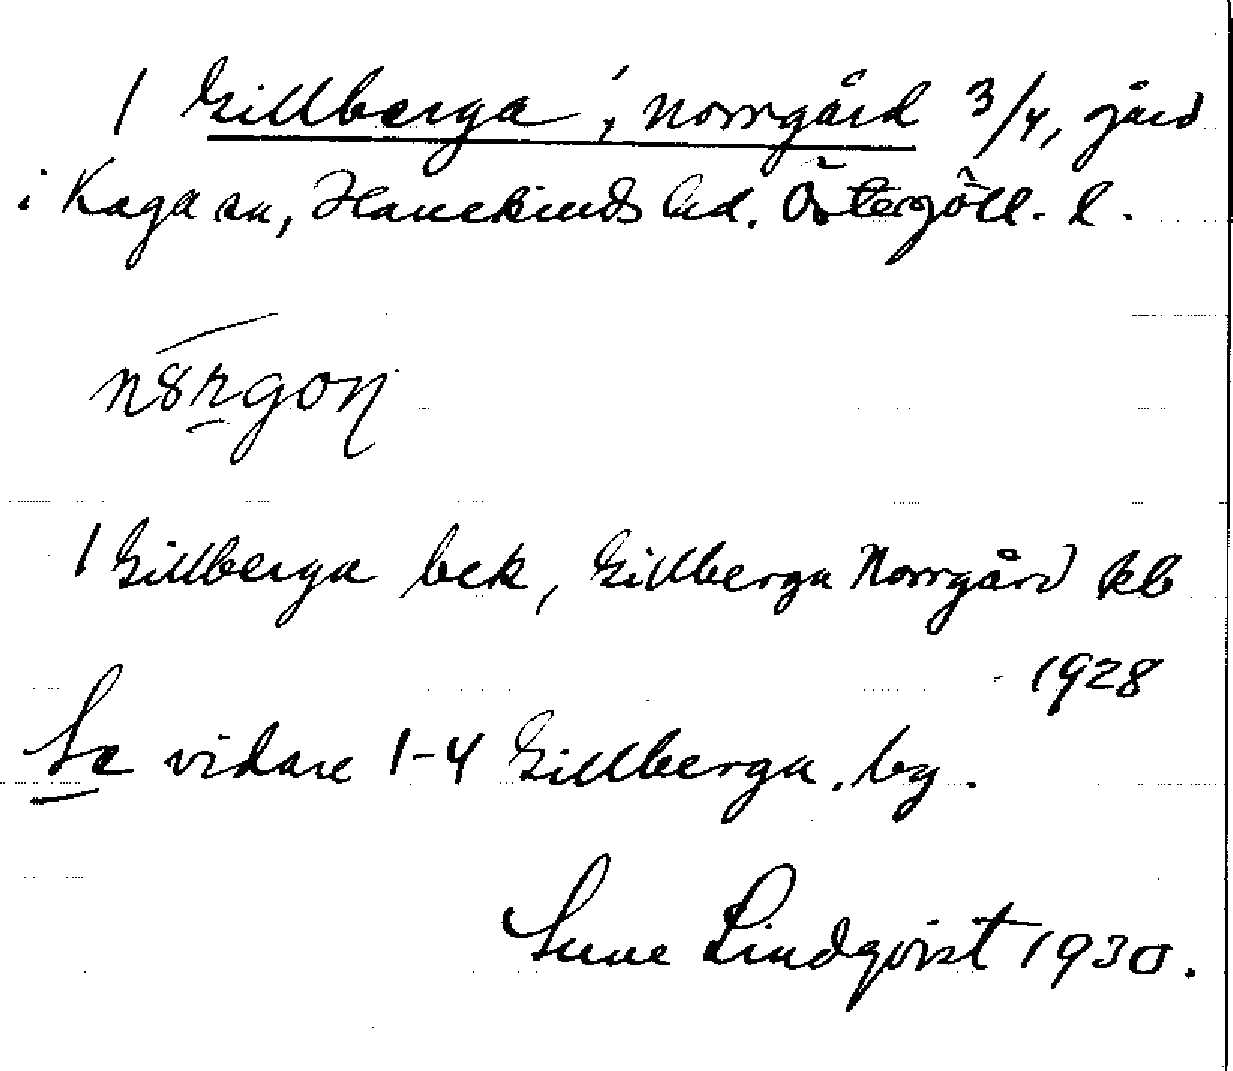 1 Gillberga, Norrgård 3/4, gård
i Kaga sn, Hanekinds hd. Östergötl. l.
n8rgoŋ
1 Gillberga bek, Gillberga Norrgård kb
1928
Se vidare 1-4 Gillberga. by.
Sune Lindqvist 1930.